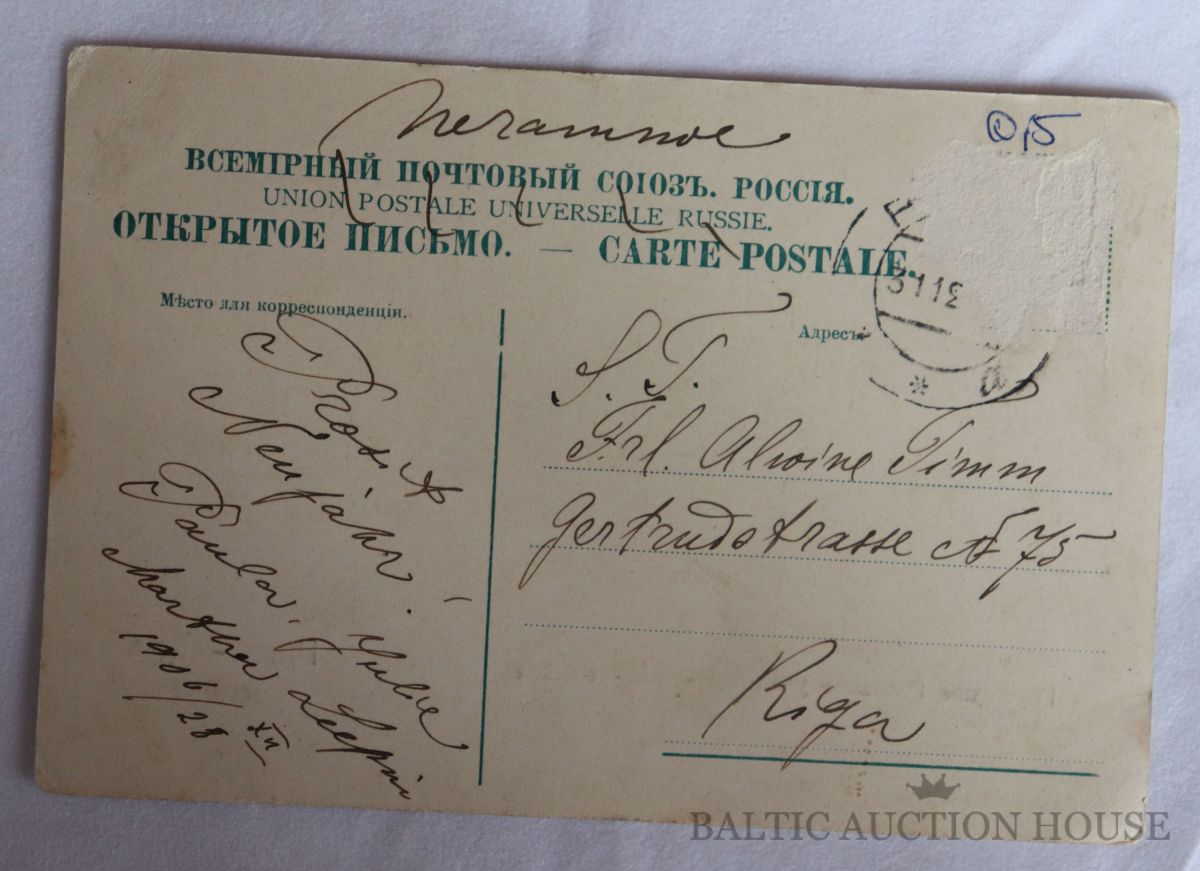 Печатное
0,15
ВСЕМІРНЫЙ ПОЧТОВЫЙ СОЮЗЪ. РОССІЯ.
UNION POSTALE UNIVERSELLE RUSSIE.
ОТКРЫТОЕ ПИСЬМО. — CARTE POSTALE.
Мѣсто для корреспонденціи.
Адресъ:
3112
Prosit
Neujahr.
Paula, Julie
Martha
1906/28 XII
S. T.
Frl. Alwine Timm
Gertrudstrasse N 75
Riga
BALTIC AUCTION HOUSE